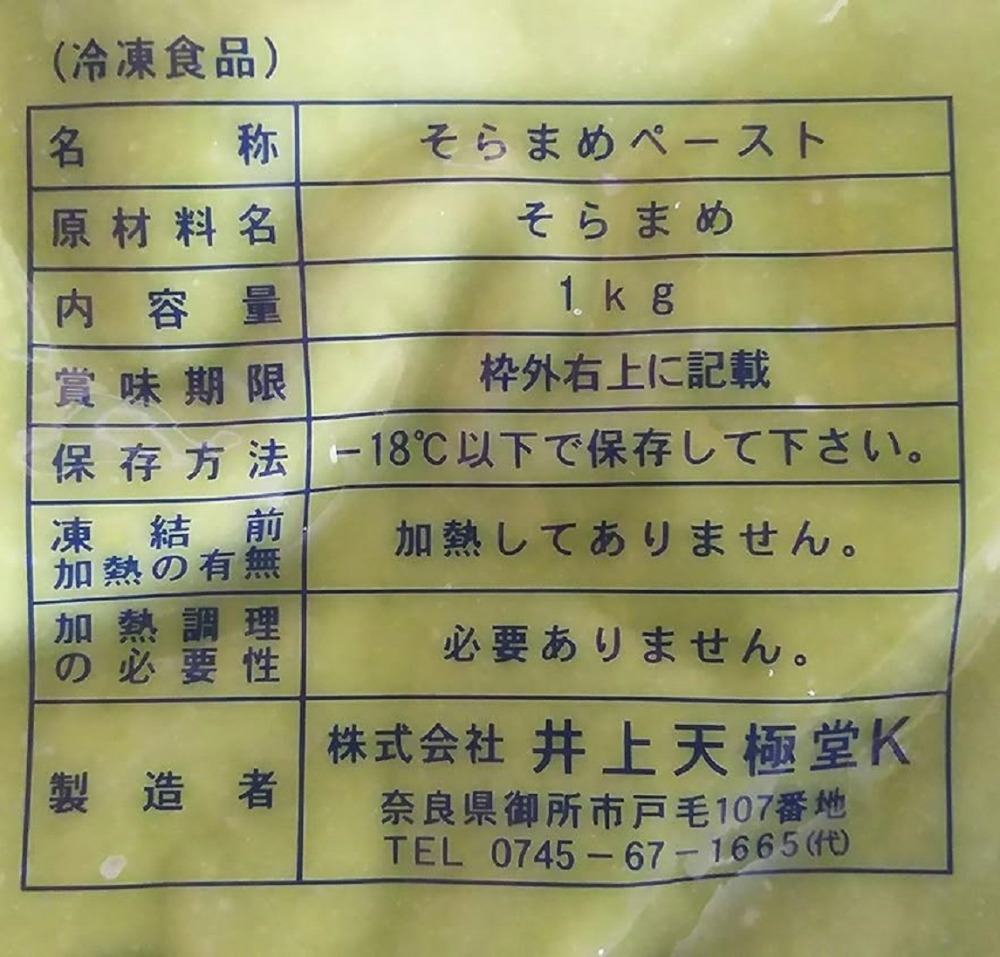 (冷凍食品)
名称 そらまめペースト
原材料名 そらまめ
内容量 1kg
賞味期限 枠外右上に記載
保存方法 -18℃以下で保存して下さい。
凍結前
加熱の有無 加熱してありません。
加熱調理
の必要性 必要ありません。
製造者 株式会社 井上天極堂K
奈良県御所市戸毛107番地
TEL 0745-67-1665(代)